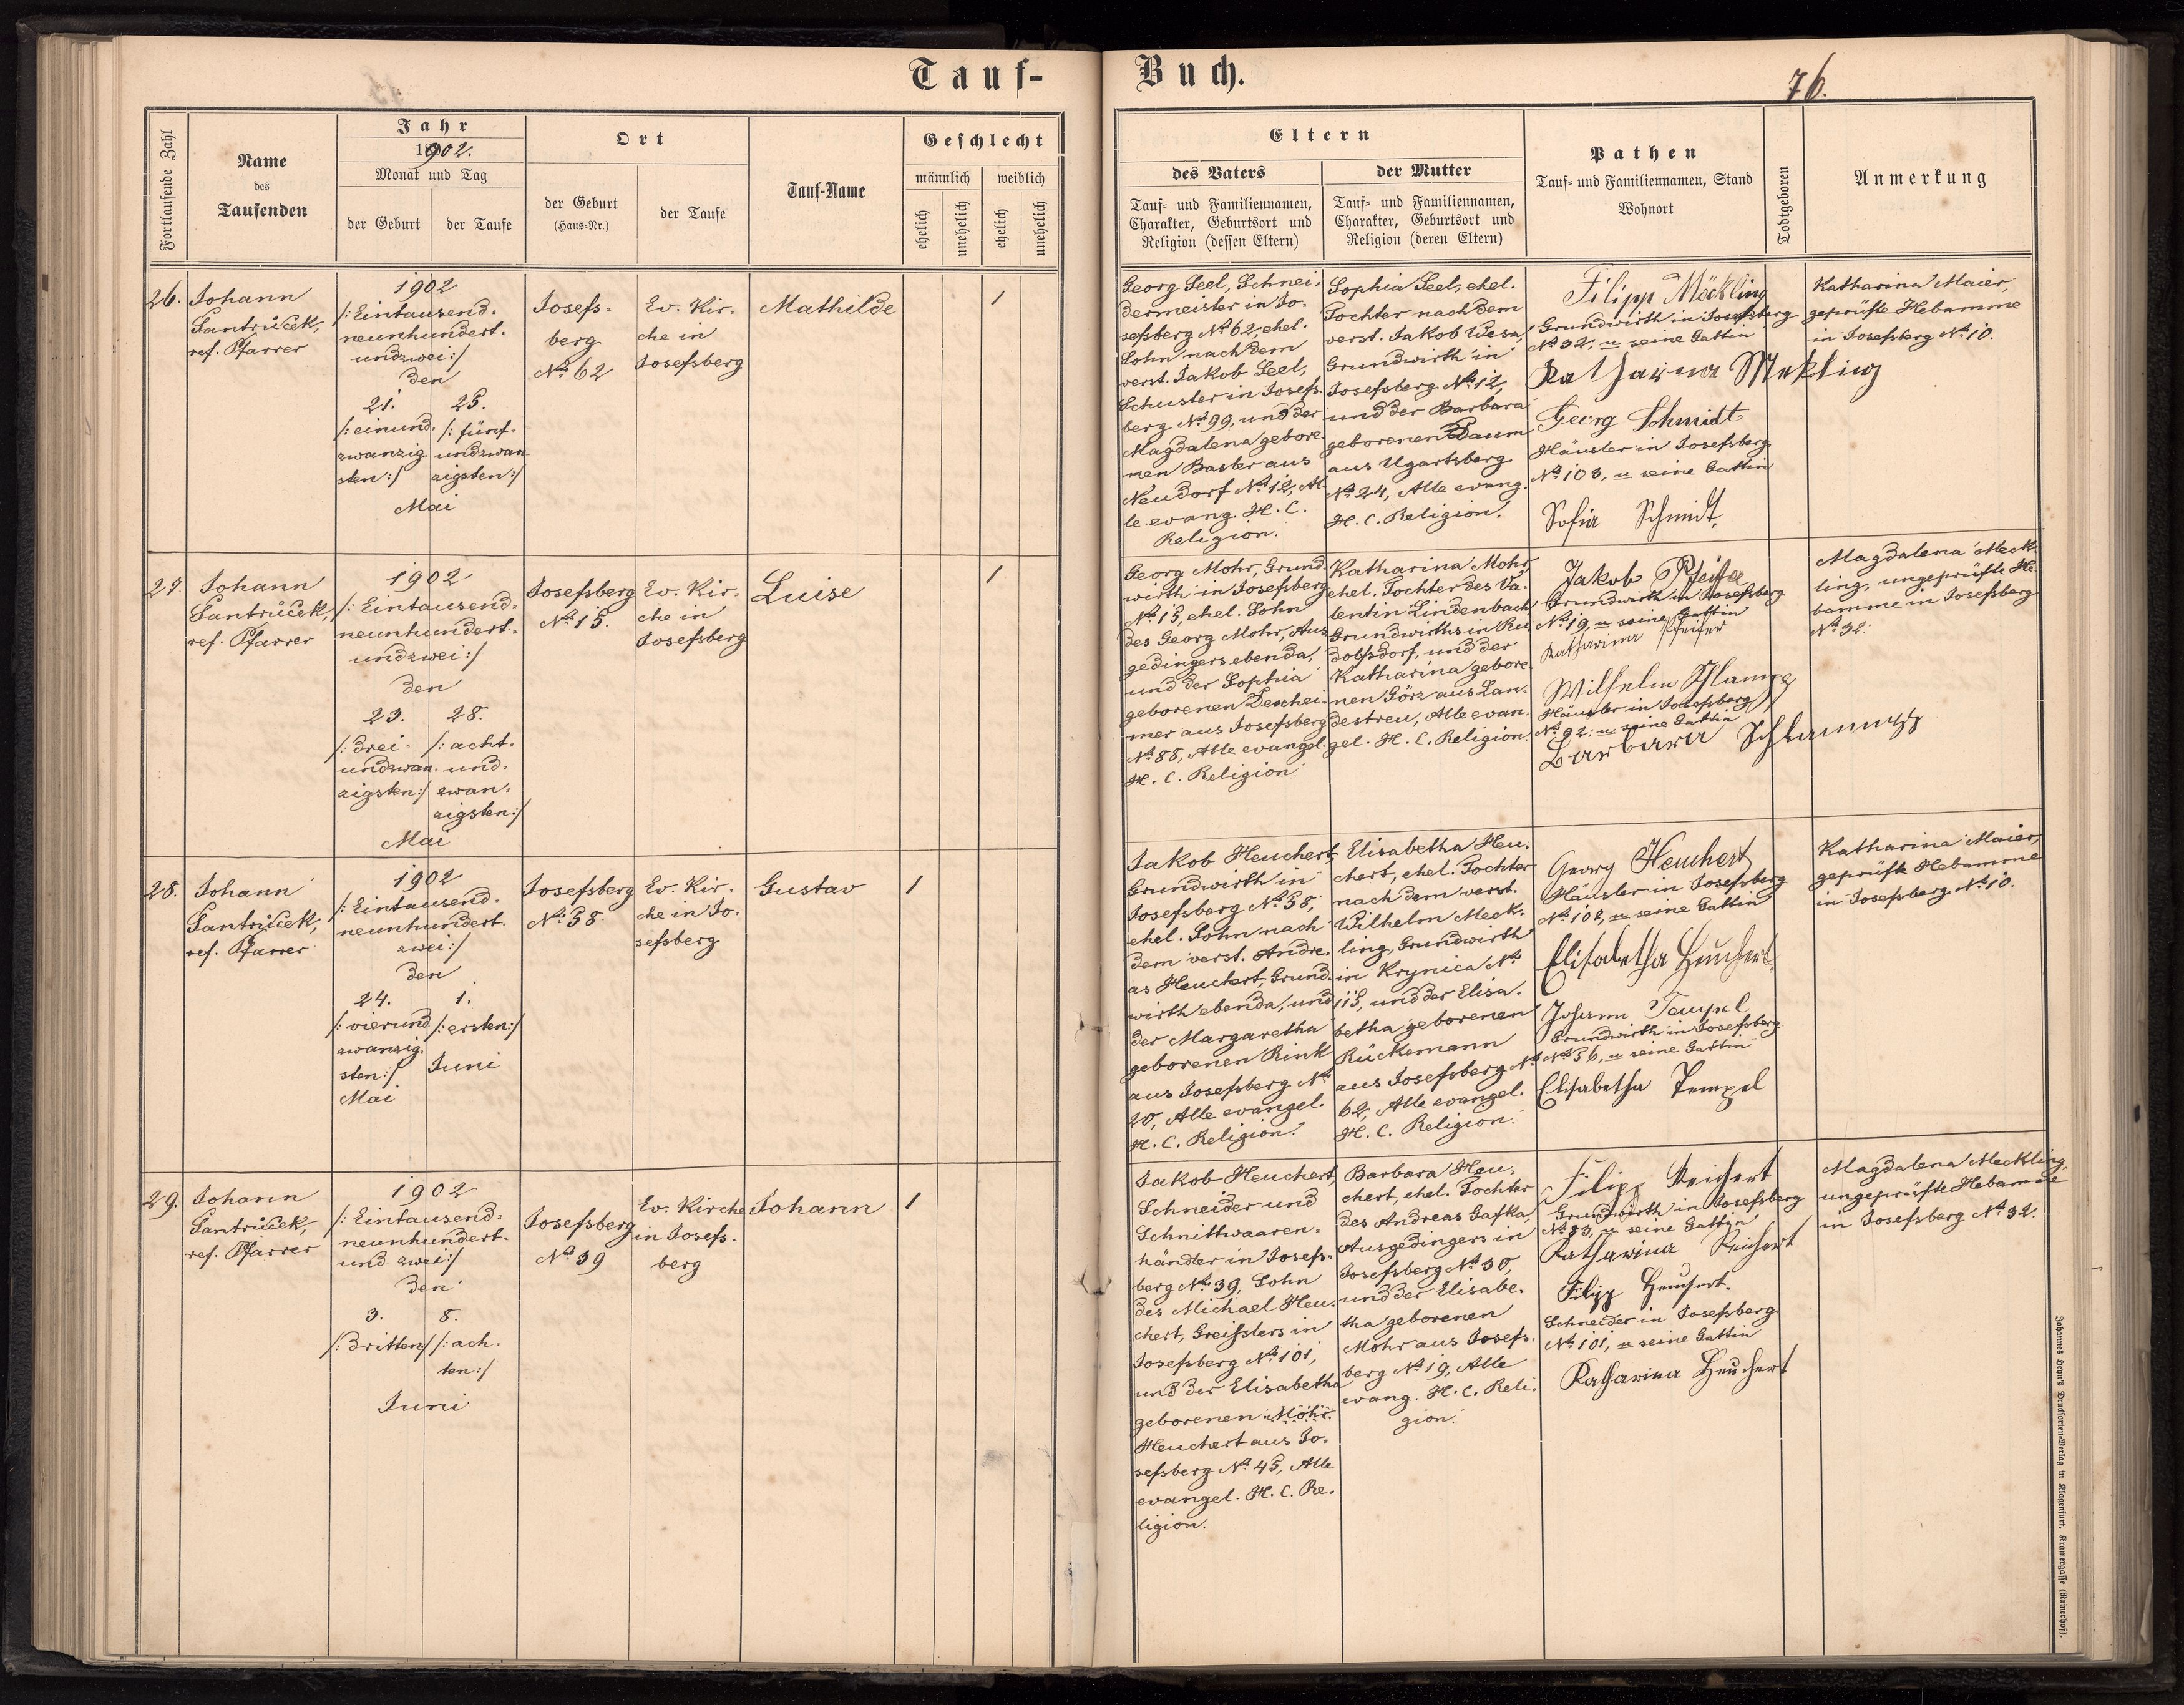 Tauf-Buch.
76.
Fortlaufende Zahl
Name
des
Taufenden
Jahr
1902.
Monat und Tag
der Geburt
der Taufe
Ort
der Geburt
(Haus-Nr.)
der Taufe
Tauf-Name
Geschlecht
männlich
weiblich
ehelich
unehelich
ehelich
unehelich
Eltern
des Vaters
Tauf- und Familiennamen,
Charakter, Geburtsort und
Religion (dessen Eltern)
der Mutter
Tauf- und Familiennamen,
Charakter, Geburtsort und
Religion (deren Eltern)
Pathen
Tauf- und Familiennamen, Stand
Wohnort
Todtgeboren
Anmerkung
26.
Johann
Santrůček,
ref. Pfarrer
1902
/:Eintausend-
neunhundert-
undzwei:/
den
21.
/:einund-
zwanzig
sten:/
25.
/:fünf-
undzwan
zigsten:/
Mai
Josefs-
berg
No 62
Ev. Kir-
che in
Josefsberg
Mathilde
1
Georg Seel, Schnei-
dermeister in Jo-
sefsberg No 62, ehel.
Sohn nach dem
verst. Jakob Seel,
Schuster in Josefs-
berg No 99, und der
Magdalena gebore-
nen Baster aus
Neudorf No 12, Al-
le evang. H. C.
Religion.
Sophia Seel, ehel.
Tochter nach dem
verst. Jakob Wesa,
Grundwirth in
Josefsberg No 12,
und der Barbara
geborenen Daum
aus Ugartsberg
No 24, Alle evang.
H. C. Religion.
Filipp Möckling
Grundwirth in Josefsberg
No 32, u seine Gattin
Katharina Mekling
Georg Schmidt
Häusler in Josefsberg
No 103, u seine Gattin
Sofia Schmidt.
Katharina Maier,
geprüfte Hebamme
in Josefsberg No 10.
27.
Johann
Santrůček,
ref. Pfarrer
1902
/:Eintausend-
neunhundert-
undzwei:/
den
23.
/:drei-
undzwan-
zigsten:/
28.
/:acht-
und-
zwan-
zigsten:/
Mai
Josefsberg
No 15.
Ev. Kir-
che in
Josefsberg
Luise
1
Georg Mohr, Grund-
wirth in Josefsberg
No 15, ehel. Sohn
des Georg Mohr, Aus-
gedingers ebenda,
und der Sophia
geborenen Dexhei-
mer aus Josefsberg
No 88, Alle evangel.
H. C. Religion.
Katharina Mohr,
ehel. Tochter des Va-
lentin Lindenbach
Grundwirths in Ru-
dolfsdorf, und der
Katharina gebore-
nen Görz aus Lan-
destreu, Alle evan-
gel. H. C. Religion.
Jakob Pfeifer
Grundwirth in Josefsberg
No 19, u seine Gattin
Katharina Pfeifer
Wilhelm Schlamp
Häusler in Josefsberg
No 92: u seine Gattin
Barbara Schlampp
Magdalena Meck-
ling, ungeprüfte He-
bamme in Josefsberg
No 32.
28.
Johann
Santrůček,
ref. Pfarrer
1902
/:Eintausend-
neunhundert-
zwei:/
den
24.
/:vierund
zwanzig-
sten:/
Mai
1.
/:ersten:/
Juni
Josefsberg
No 58
Ev. Kir-
che in Jo-
sefsberg
Gustav
1
Jakob Heuchert,
Grundwirth in
Josefsberg No 58,
ehel. Sohn nach
dem verst. Andre-
as Heuchert, Grund-
wirth ebenda, und
der Margaretha
geborenen Rink
aus Josefsberg No
20, Alle evangel.
H. C. Religion.
Elisabetha Heu-
chert, ehel. Tochter
nach dem verst.
Wilhelm Meck-
ling, Grundwirth
in Krynica No
115, und der Elisa-
betha geborenen
Rückemann
aus Josefsberg No
62, Alle evangel.
H. C. Religion.
Georg Heuchert
Häusler in Josefsberg
No 102, u seine Gattin
Elisabetha Heuchert.
Johann Tempel
Grundwirth in Josefsberg
No 56, u seine Gattin
Elisabetha Tempel
Katharina Maier,
geprüfte Hebamme
in Josefsberg No 10.
29.
Johann
Santrůček,
ref. Pfarrer
1902
/:Eintausend-
neunhundert-
und zwei:/
den
3.
/:dritten:/
8.
/:ach-
ten:/
Juni
Josefsberg
No 39
Ev. Kirche
in Josefs-
berg
Johann
1
Jakob Heuchert,
Schneider und
Schnittwaaren-
händler in Josefs-
berg No 39, Sohn
des Michael Heu-
chert, Greisslers in
Josefsberg No 101,
und der Elisabetha
geborenen Mohr
Heuchert aus Jo-
sefsberg No 45, Alle
evangel. H. C. Re-
ligion.
Barbara Heu-
chert, ehel. Tochter
des Andreas Gafka,
Ausgedingers in
Josefsberg No 30,
und der Elisabe-
tha geborenen
Mohr aus Josefs-
berg No 19, Alle
evang. H. C. Reli-
gion.
Filipp Reichert
Grundwirth in Josefsberg
No 93, u seine Gattin
Katharina Reichert
Filipp Heuchert.
Schneider in Josefsberg
No 101, u seine Gattin
Katharina Heuchert
Magdalena Meckling,
ungeprüfte Hebamme
in Josefsberg No 32.
Johannes Heyn's Drucksorten-Verlag in Klagenfurt, Kramergasse (Rainerhof).